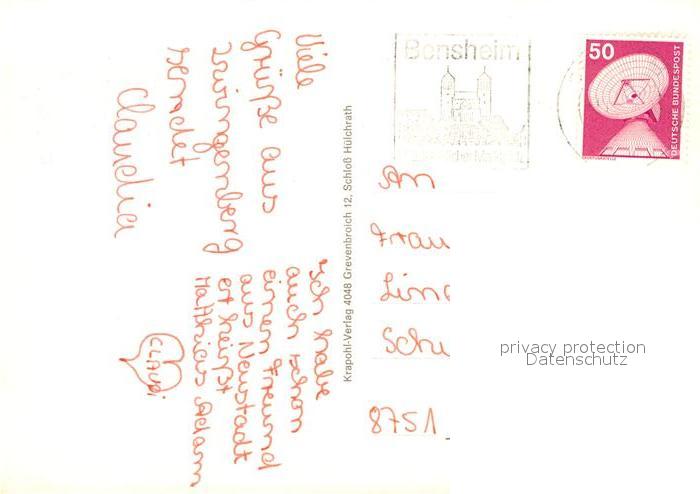 Viele
Grüße aus
Zwingenberg
sendet
Claudia
Ich habe
auch schon
einen Freund
aus Neustadt
er heißt
Matthias Adam
CLAUDI
Krapohl-Verlag 4048 Grevenbroich 12, Schloß Hülchrath
Bensheim
50
DEUTSCHE BUNDESPOST
An
Frau
Schu
8751
privacy protection
Datenschutz